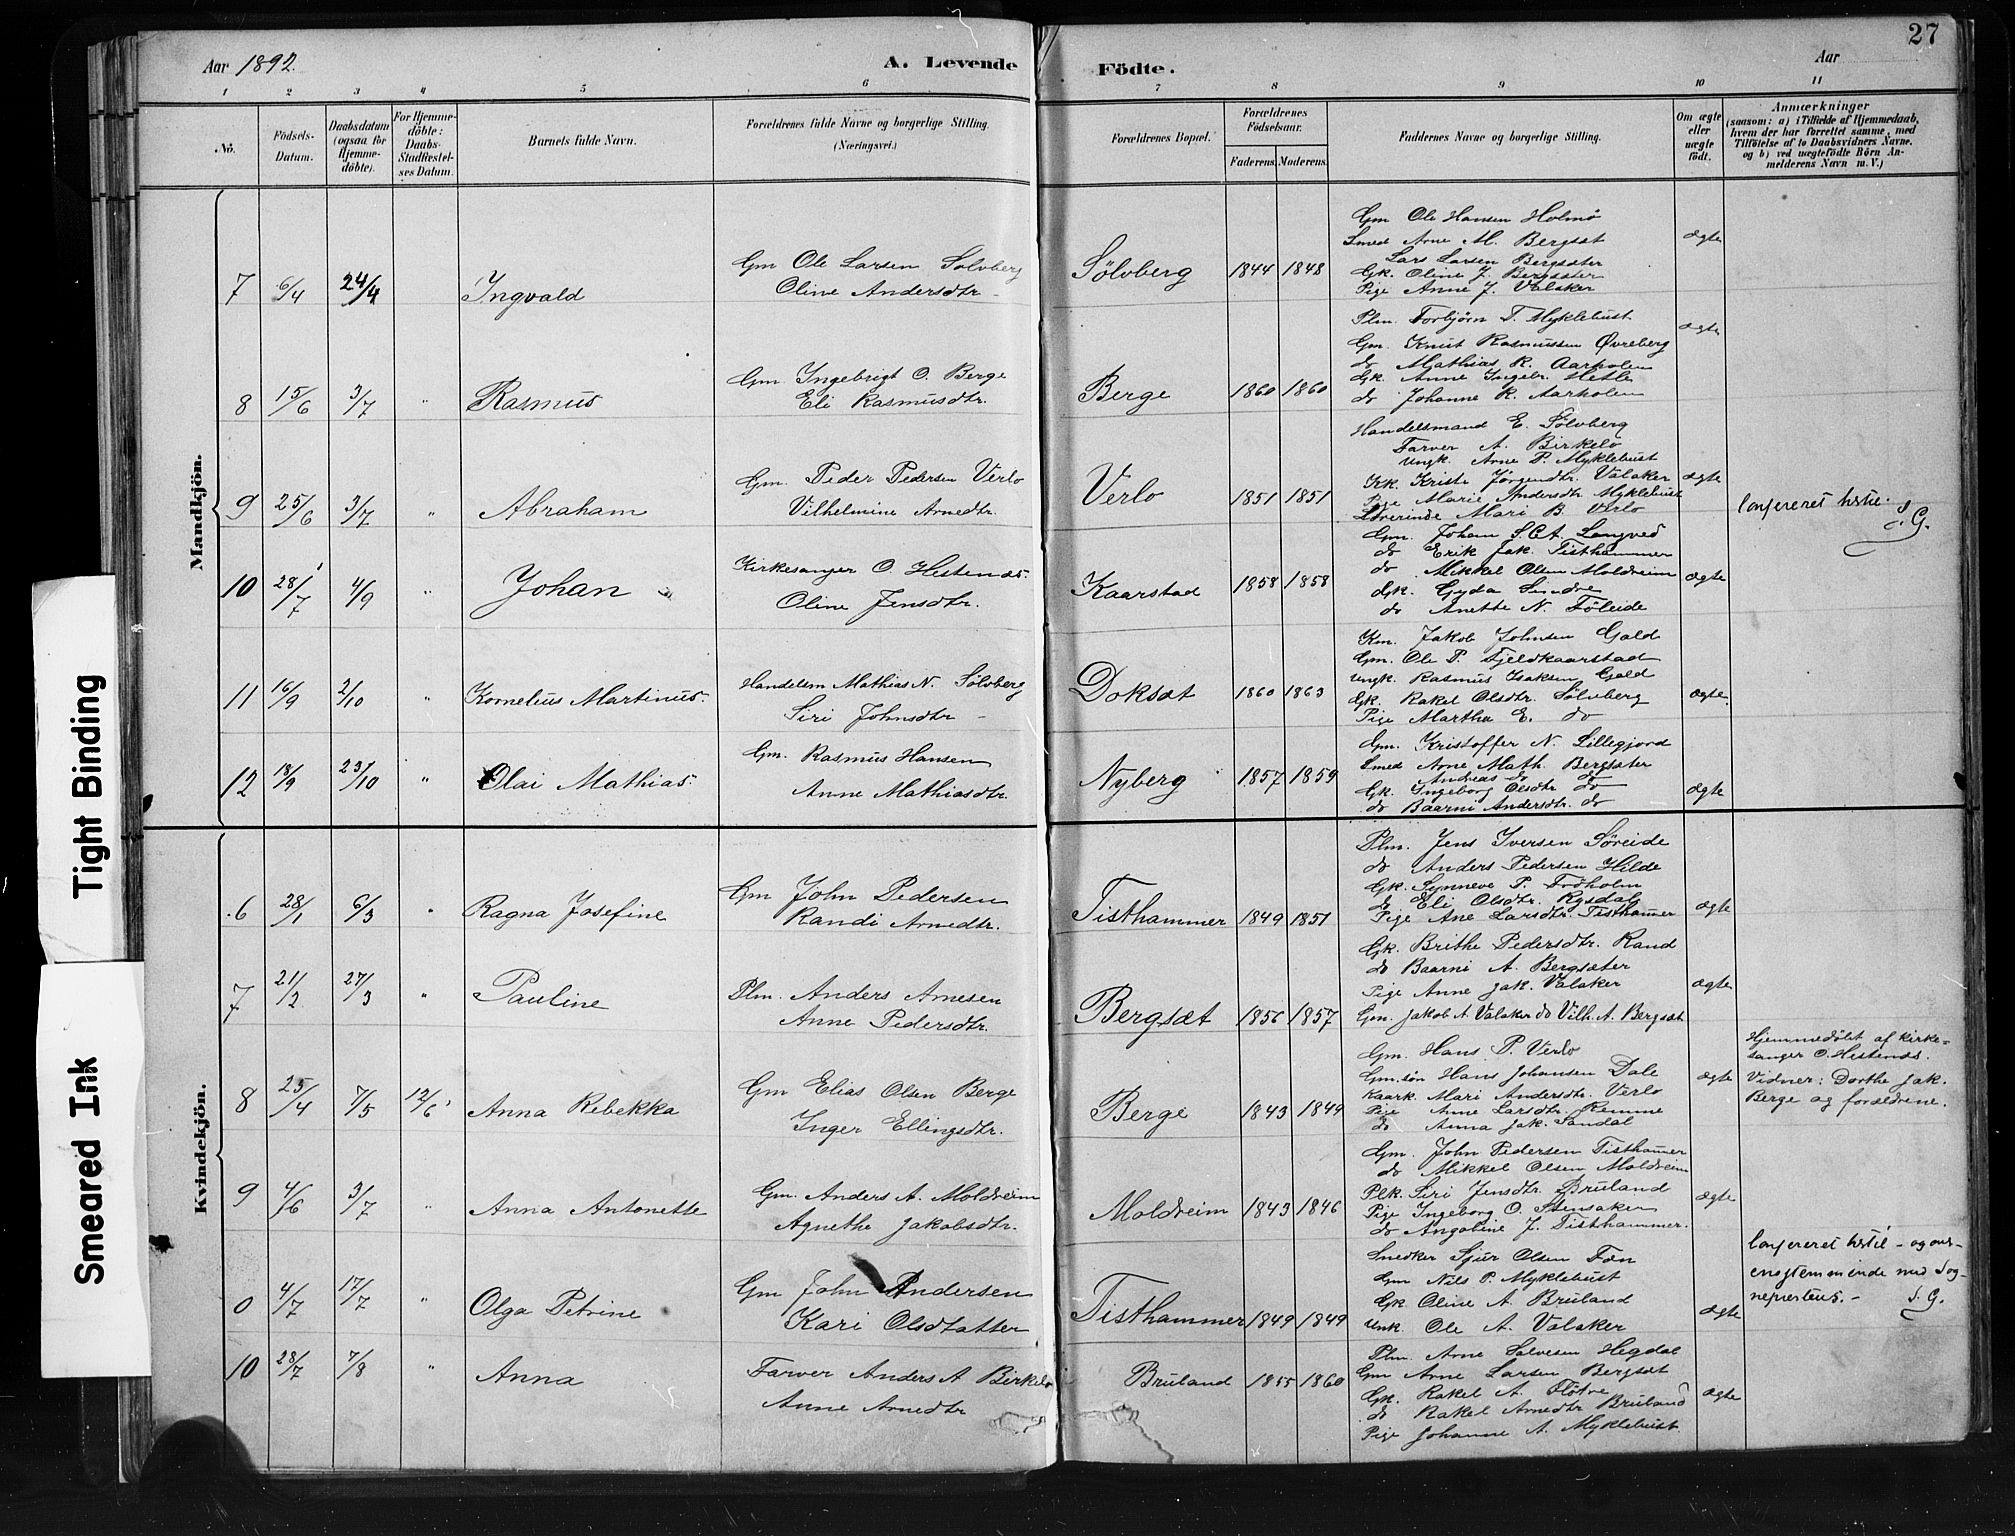 27
Aar 1892.
A. Levende Födte.
Aar
1 2 3 4 5 6 7 8 9 10 11
No.
Födsels-Datum.
Daabsdatum (ogsaa for Hjemmedöbte).
For Hjemmedöbte: Daabs-Stadfæstelses Datum.
Barnets fulde Navn.
Forældrenes fulde Navne og borgerlige Stilling.
(Næringsvei.)
Forældrenes Bopæl.
Forældrenes Födselsaar.
Faderens. Moderens.
Faddernes Navne og borgerlige Stilling.
Om ægte eller uægte födt.
Anmærkninger
(saasom: a) i Tilfælde af Hjemmedaab, hvem der har forrettet samme, med Tilföielse af to Daabsvidners Navne. og b) ved uægtefödte Börn Anmelderens Navn m. V.)
Mandkjön.
7 6/4 24/4 Ingvald
Gm Ole Larsen Sölvberg
Oline Andersdtr
Sölvberg 1844 1848
Gm Ole Hansen Holmö
Smed Arne M. Bergsæt
Lars Larsen Bergsæter
Gk. Oline J. Bergsæter
Pige Anne J. Valaker
ægte
8 15/6 3/7 " Rasmus
Gm Ingebrigt O. Berge
Eli Rasmusdtr.
Berge 1860 1860
Plm. Torbjörn T. Myklebust
Gm. Knut Rasmussen Øvreberg
do Mathias R. Aarholen
Gk. Anne Ingebr. Hetle
do Johanne R. Aarholen
ægte
9 25/6 3/7 " Abraham
Gm. Peder Pedersen Verlo
Vilhelmine Arnedtr.
Verlo 1851 1851
Handelsmand E. Sölvberg
Farver A. Birkelo
Ungk. Arne P. Myklebust
Kk. Kristi Jörgendtr. Valaker
Pige Marie Andersdtr Myklebust
Lærerinde Mari B. Verlo
ægte
S. G.
10 28/7 4/9 " Johan
Kirkesanger O. Hestenæs.
Oline Jensdtr.
Kaarstad 1858 1858
Gm. Johan S. C. A. Langved
do Erik Jak. Tisthammer
do Mikkel Olsen Moldreim
Gk. Gyda Sindre
do Anette N. Föleide
ægte
11 16/9 2/10 " Kornelius Martinus.
Handelsm Mathias N. Sölvberg
Siri Johnsdtr
Doksæt 1860 1863
Km. Jakob Johnsen Gald
Gm. Ole P. Fjeldkaarstad
Ungk. Rasmus Isaksen Gald
Gk. Rakel Olsdtr Sölvberg
Pige Martha E. do
ægte.
12 18/9 23/10 " Olai Mathias.
Gm. Rasmus Hansen
Anne Mathiasdtr.
Nyberg 1857 1859
Gm. Kristoffer N. Lillegjord
Smed Arne Math. Bergsæter
Andreas do do
Gk. Ingeborg Olsdtr do
do Baarni Andersdtr. do
ægte
Kvindekjön.
6 28/1 6/3 " Ragna Josefine
Gm John Pedersen
Randi Arnedtr.
Tisthammer 1849 1851
Plm. Jens Iversen Söreide
do Anders Pedersen Hilde
Gk. Synneve P. Fröholm
do Eli Olsdtr. Rysdal
Pige Ane Larsdtr. Tisthammer
ægte
7 21/2 27/3 " Pauline
Plm. Anders Arnesen
Anne Pedersdtr.
Bergsæt 1856 1857
Gk. Brithe Pedersdtr. Rand
do Baarni A. Bergsæter
Pige Anne Jak. Valaker
Gm. Jakob A. Valaker do Vilh. A. Bergsæt
ægte
8 25/4 7/5 12/6 Anna Rebekka
Gm Elias Olsen Berge
Inger Ellingsdtr.
Berge 1843 1849
Gm. Hans P. Verlo
Gm.sön Hans Johansen Dale
Kaark. Mari Andersdtr. Verlo
Pige Anne Larsdtr. Remme
do Anna Jak. Sandal
ægte
Hjemmedöbt af kirke-
sanger O. Hestenæs.
Vidner: Dorthe Jak.
Berge og forældrene.
9 4/6 3/7 " Anna Antonette
Gm. Anders A. Moldreim
Agnethe Jakobsdtr.
Moldreim 1843 1846
Gm. John Pedersen Tisthammer
do Mikkel Olsen Moldreim
Plk. Siri Jensdtr. Bruland
Pige Ingeborg O. Stensaker
do Angoline J. Tisthammer.
ægte
0 4/7 17/7 " Olga Petrine
Gm John Andersen
Kari Olsdtatter
Tisthammer 1849 1849
Snedker Sjur Olsen Fæn
Gm Nils P. Myklebust
Gk Oline A. Bruland
Unk. Ole A. Valaker
ægte
S. G.
10 28/7 7/8 " Anna
Farver Anders A Birkelo
Anne Arnedtr
Bruland 1855 1860
Plm. Arne Salvesen Hegdal
Gm Arne Larsen Bergsæt
Gk. Rakel A. Flötre
do Rakel Arnedtr Bruland
Pige Johanne A. Myklebust
ægte
Tight Binding
Smeared Ink